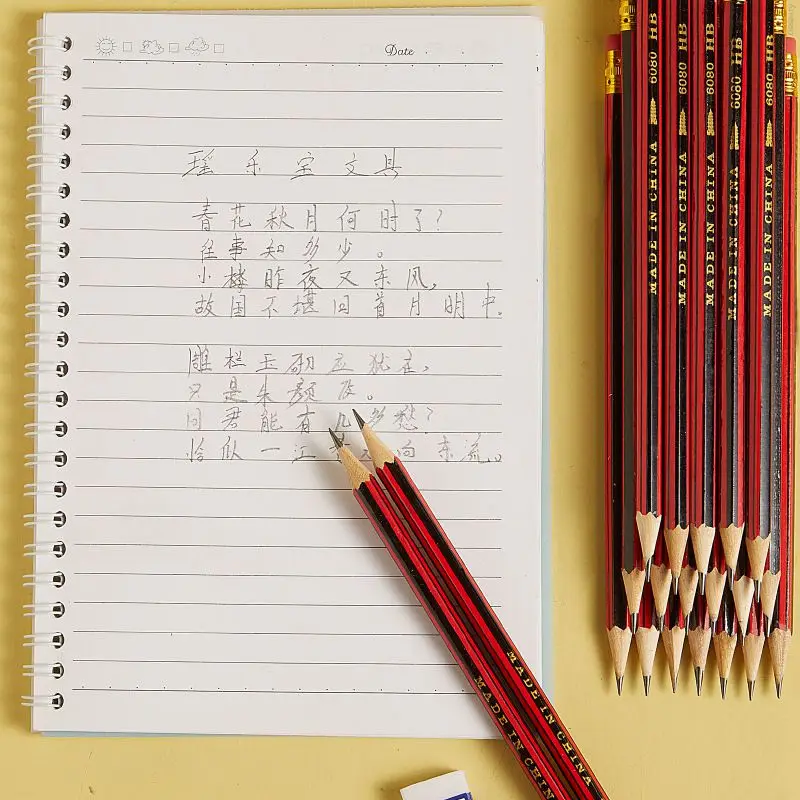 Date
瑶乐宝文具
春花秋月何时了?
往事知多少。
小楼昨夜又东风,
故国不堪回首月明中.
雕栏玉砌应犹在,
只是朱颜改。
问君能有几多愁?
恰似一江向东流。
MADE IN CHINA 6080 HB
MADE IN CHINA 6080 HB
MADE IN CHINA 6080 HB
MADE IN CHINA 6080 HB
MADE IN CHINA 6080 HB
MADE IN CHINA
MADE IN CHINA